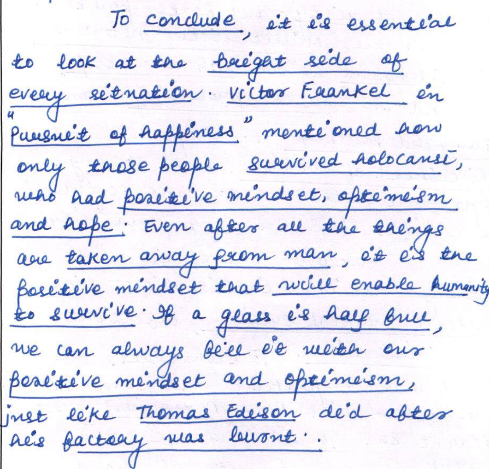 To conclude, it is essential
to look at the bright side of
every situation. Victor Frankel in
"Pursuit of happiness" mentioned how
only those people survived holocaust,
who had positive mindset, optimism
and hope. Even after all the things
are taken away from man, it is the
positive mindset that will enable humanity
to survive. If a glass is half full,
we can always fill it with our
positive mindset and optimism,
just like Thomas Edison did after
his factory was burnt..